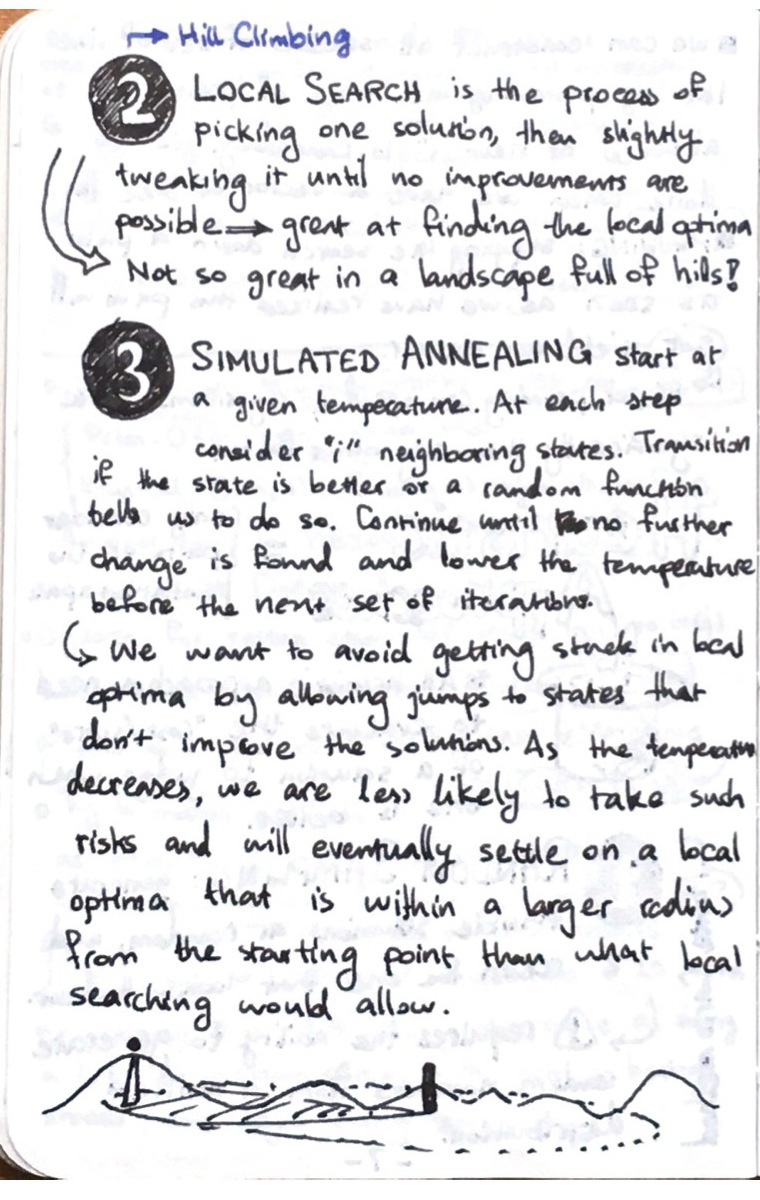 → Hill Climbing
2 LOCAL SEARCH is the process of
picking one solution, then slightly
tweaking it until no improvements are
possible ⇒ great at finding the local optima
Not so great in a landscape full of hills!
3 SIMULATED ANNEALING start at
a given temperature. At each step
consider "i" neighboring states. Transition
if the state is better or a random function
tells us to do so. Continue until no further
change is found and lower the temperature
before the next set of iterations.
↳ We want to avoid getting stuck in local
optima by allowing jumps to states that
don't improve the solutions. As the temperature
decreases, we are less likely to take such
risks and will eventually settle on a local
optima that is within a larger radius
from the starting point than what local
searching would allow.